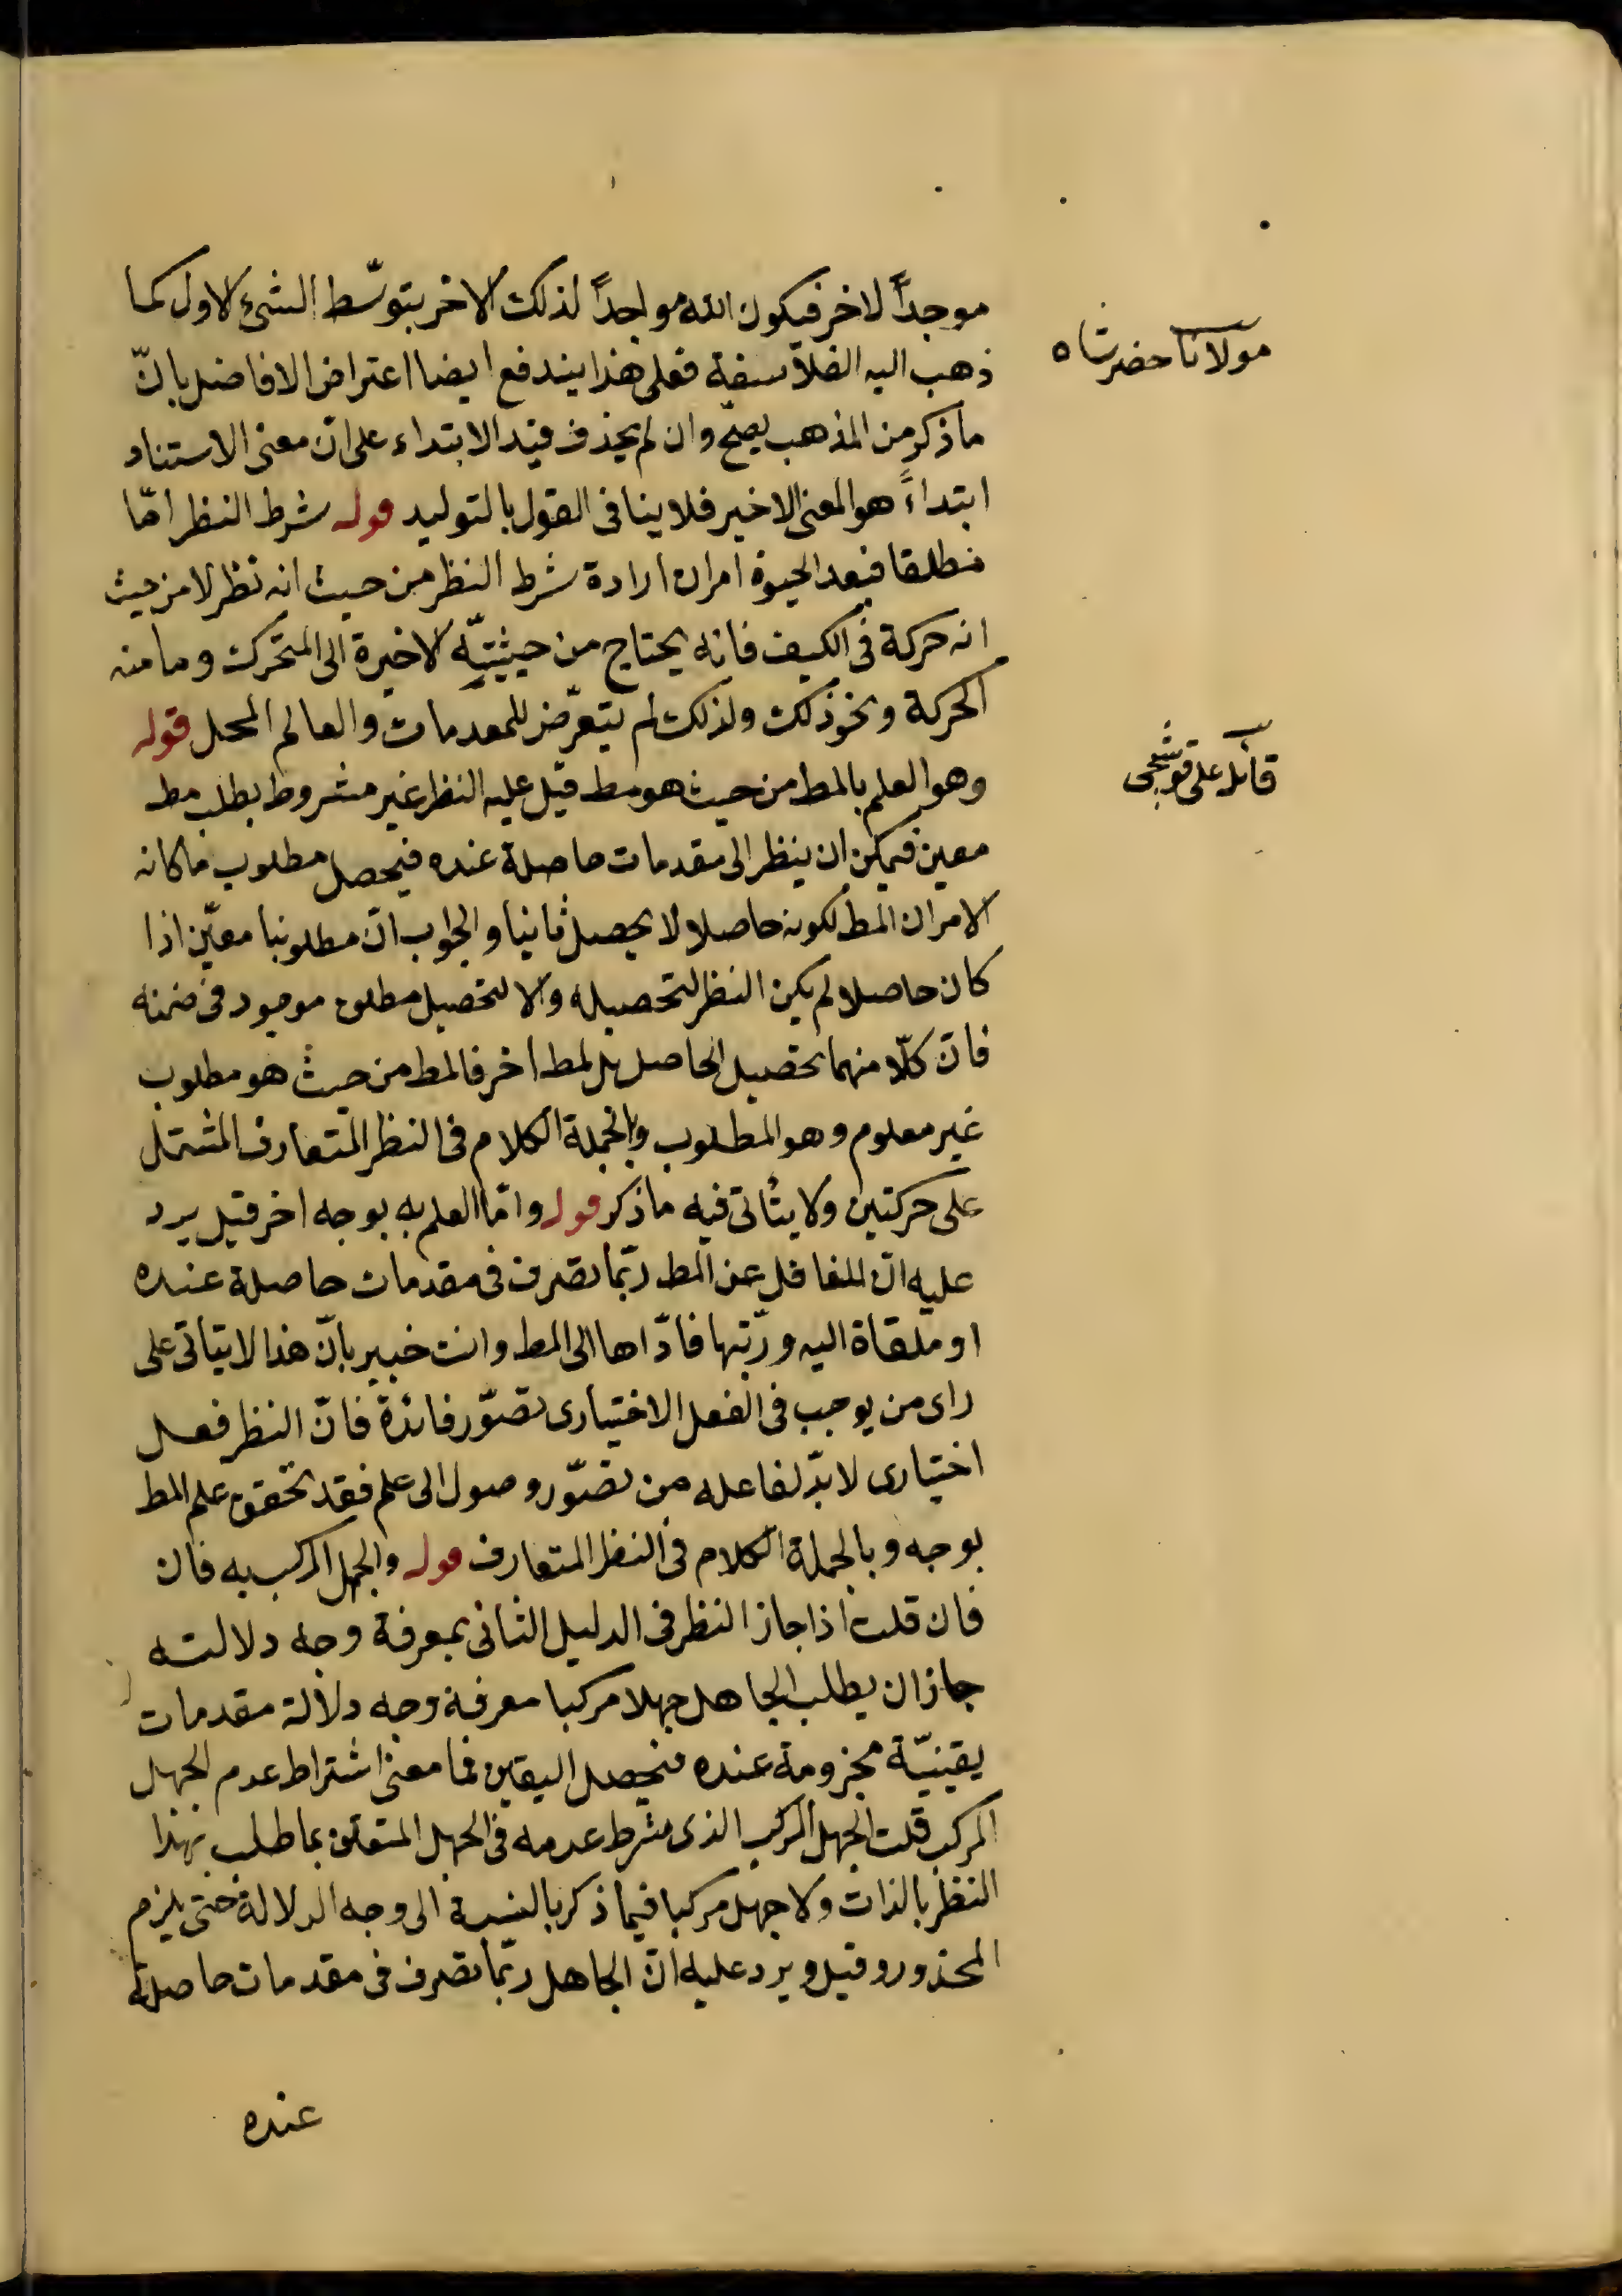 موجداً لاخر فيكون الله موجداً لذلك الاخر بتوسّط الشئ الاول كما
ذهب اليه الفلاسفة فعلى هذا يندفع ايضا اعتراض الافاضل بانّ
ما ذكر من المذهب يصحّ وان لم يحذف قيد الابتداء على انّ معنى الاستناد
ابتداءً هو المعنى الاخير فلا ينافى القول بالتوليد قوله شرط النظر امّا
مطلقا فبعد الحيوة امران ارادة شرط النظر من حيث انه نظر لا من حيث
انه حركة فى الكيف فانه يحتاج من حيثيّته الاخيرة الى المتحرك وما منه
الحركة ونحو ذلك ولذلك لم يتعرّض للمعدمات والعالم المحل قوله
وهو العلم بالمط من حيث هو مط قيل عليه النظر غير مشروط بطلب مط
معين فيمكن ان ينظر الى مقدمات حاصلة عنده فيحصل مطلوب ما كانه
الامر ان المط لكونه حاصلا لا يحصل ثانيا والجواب انّ مطلوبنا معيّن اذا
كان حاصلا لم يكن النظر لتحصيله والا لتحصيل مطلوب موجود فى ضمنه
فانّ كلّا منهما تحصيل الحاصل بل لمط اخر فالمط من حيث هو مطلوب
غير معلوم وهو المطلوب وبالجملة الكلام فى النظر المتعارف المشتمل
على حركتين ولا يتأتى فيه ما ذكر قوله وامّا العلم به بوجه اخر قيل يرد
عليه انّ الغافل عن المط ربّما تصرف فى مقدمات حاصلة عنده
او ملقاة اليه ورتّبها فادّاها الى المط وانت خبير بانّ هذا لا يتأتى على
راى من يوجب فى الفعل الاختيارى تصوّر فائدة فانّ النظر فعل
اختيارى لا بدّ لفاعله من تصوّر وصول الى علم فقد تحقق علم المط
بوجه وبالجملة الكلام فى النظر المتعارف قوله والجهل المركب به فان
فان قلت اذا جاز النظر فى الدليل الثانى بمعرفة وجه دلالته
جاز ان يطلب الجاهل جهلا مركبا معرفة وجه دلالة مقدمات
يقينيّة مجزومة عنده فيحصل اليقين فما معنى اشتراط عدم الجهل
المركب قلت الجهل المركب الذى شرط عدمه فى الجهل المتعلق بما طلب بهذا
النظر بالذات ولا جهل مركبا فيما ذكر بالنسبة الى وجه الدلالة حتى يلزم
المحذور وقيل ويرد عليه انّ الجاهل ربّما تصرف فى مقدمات حاصلة
عنده
مولانا حضرشاه
قائله على قوشجى